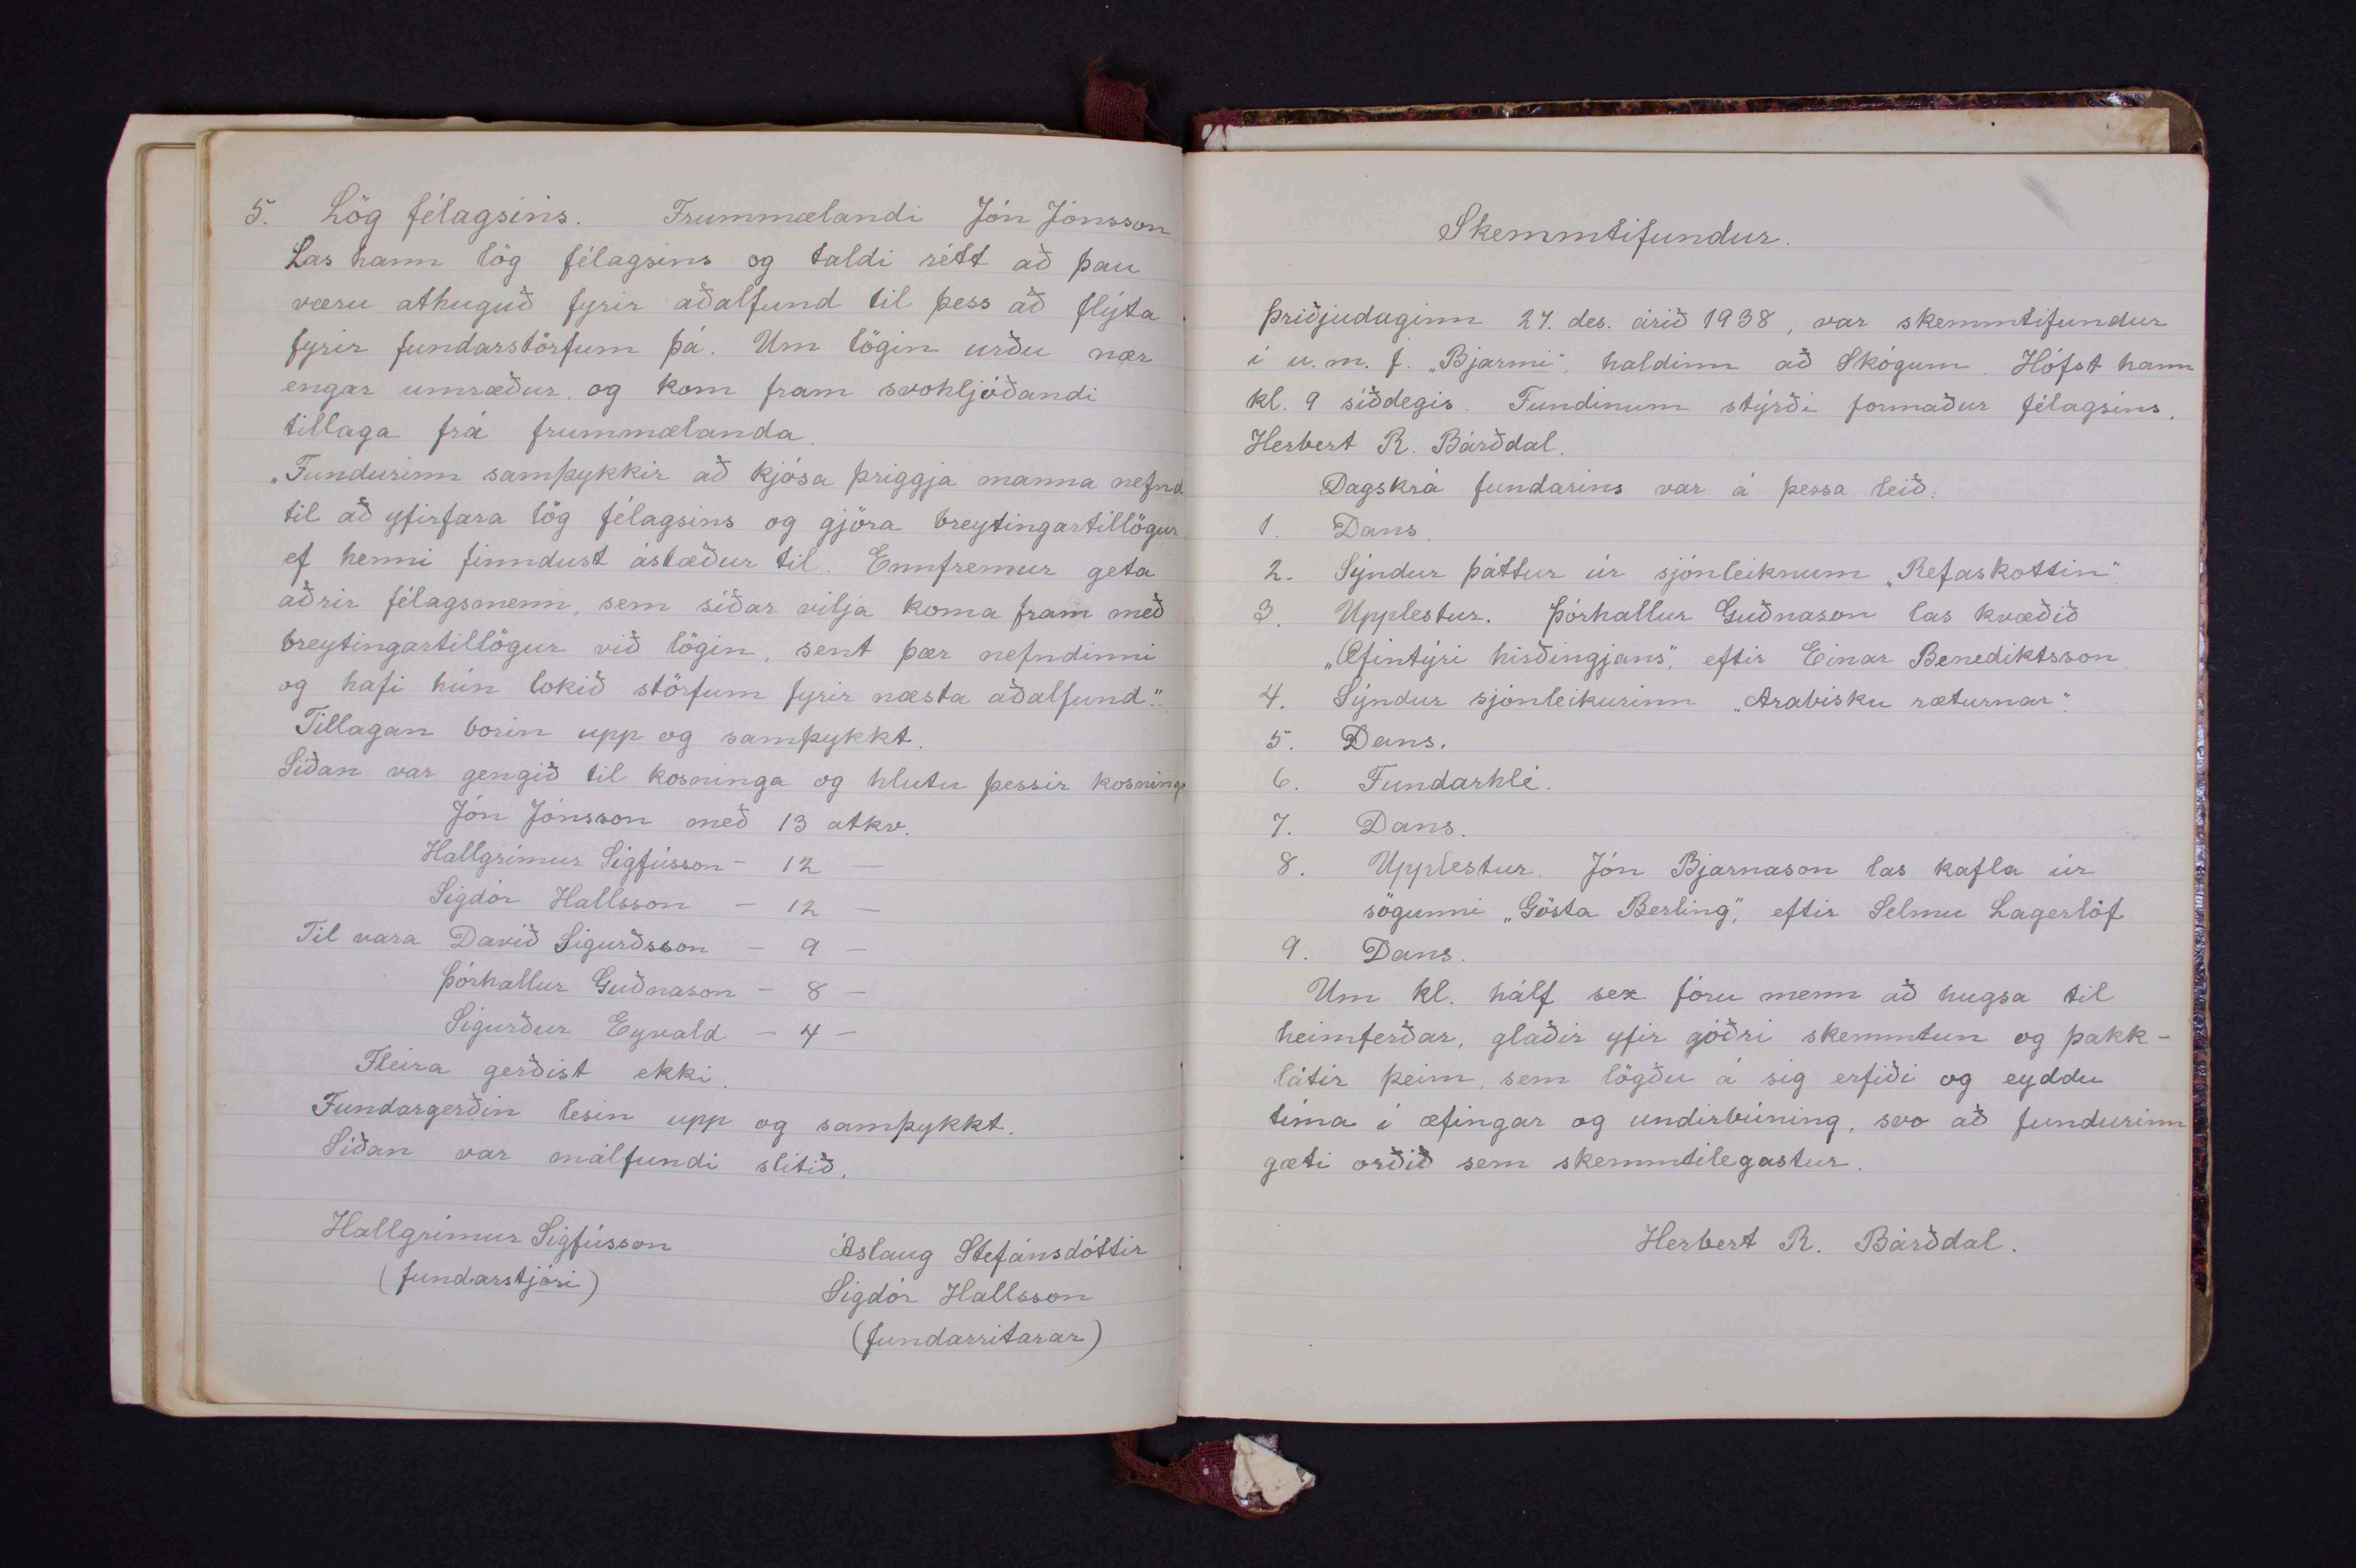 5. Lög félagsins. Frummælandi Jón Jónsson
Las hann lög félagsins og taldi rétt að þau
væru athuguð fyrir aðalfund til þess að flýta
fyrir fundarstörfum þá. Um lögin urðu nær
engar umræður, og kom fram svohljóðandi
tillaga frá frummælanda.
„Fundurinn samþykkir að kjósa þriggja manna nefnd
til að yfirfara lög félagsins og gjöra breytingartillögur
ef henni finndust ástæður til. Ennfremur geta
aðrir félagsmenn, sem síðar vilja koma fram með
breytingartillögur við lögin, sent þær nefndinni
og hafi hún lokið störfum fyrir næsta aðalfund."
Tillagan borin upp og samþykkt.
Síðan var gengið til kosninga og hlutu þessir kosningu
Jón Jónsson með 13 atkv.
Hallgrímur Sigfússon - 12 -
Sigdór Hallsson - 12 -
Til vara Davíð Sigurðsson - 9 -
Þórhallur Guðnason - 8 -
Sigurður Eyvald - 4 -
Fleira gerðist ekki.
Fundargerðin lesin upp og samþykkt.
Síðan var málfundi slitið.
Hallgrímur Sigfússon
(fundarstjóri)
Áslaug Stefánsdóttir
Sigdór Hallsson
(fundarritarar)
Skemmtifundur.
Þriðjudaginn 27. des. árið 1938, var skemmtifundur
í u. m. f. „Bjarmi", haldinn að Skógum. Hófst hann
kl. 9 síðdegis. Fundinum stýrði formaður félagsins,
Herbert R. Bárðdal.
Dagskrá fundarins var á þessa leið:
1. Dans.
2. Sýndur þáttur úr sjónleiknum „Refaskottin".
3. Upplestur. Þórhallur Guðnason las kvæðið
„Æfintýri hirðingjans", eftir Einar Benediktsson.
4. Sýndur sjónleikurinn „Arabisku ræturnar".
5. Dans.
6. Fundarhlé.
7. Dans.
8. Upplestur. Jón Bjarnason las kafla úr
sögunni „Gösta Berling", eftir Selmu Lagerlöf.
9. Dans.
Um kl. hálf sex fóru menn að hugsa til
heimferðar, glaðir yfir góðri skemmtun og þakk-
látir þeim, sem lögðu á sig erfiði og eyddu
tíma í æfingar og undirbúning, svo að fundurinn
gæti orðið sem skemmtilegastur.
Herbert R. Bárðdal.